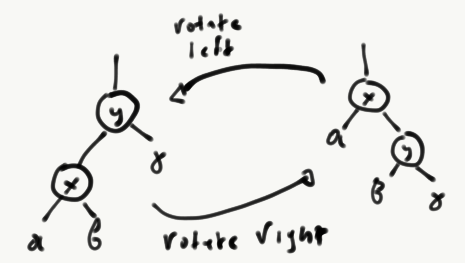 rotate
left
y
x
γ
x
α
y
α
β
β
γ
rotate right